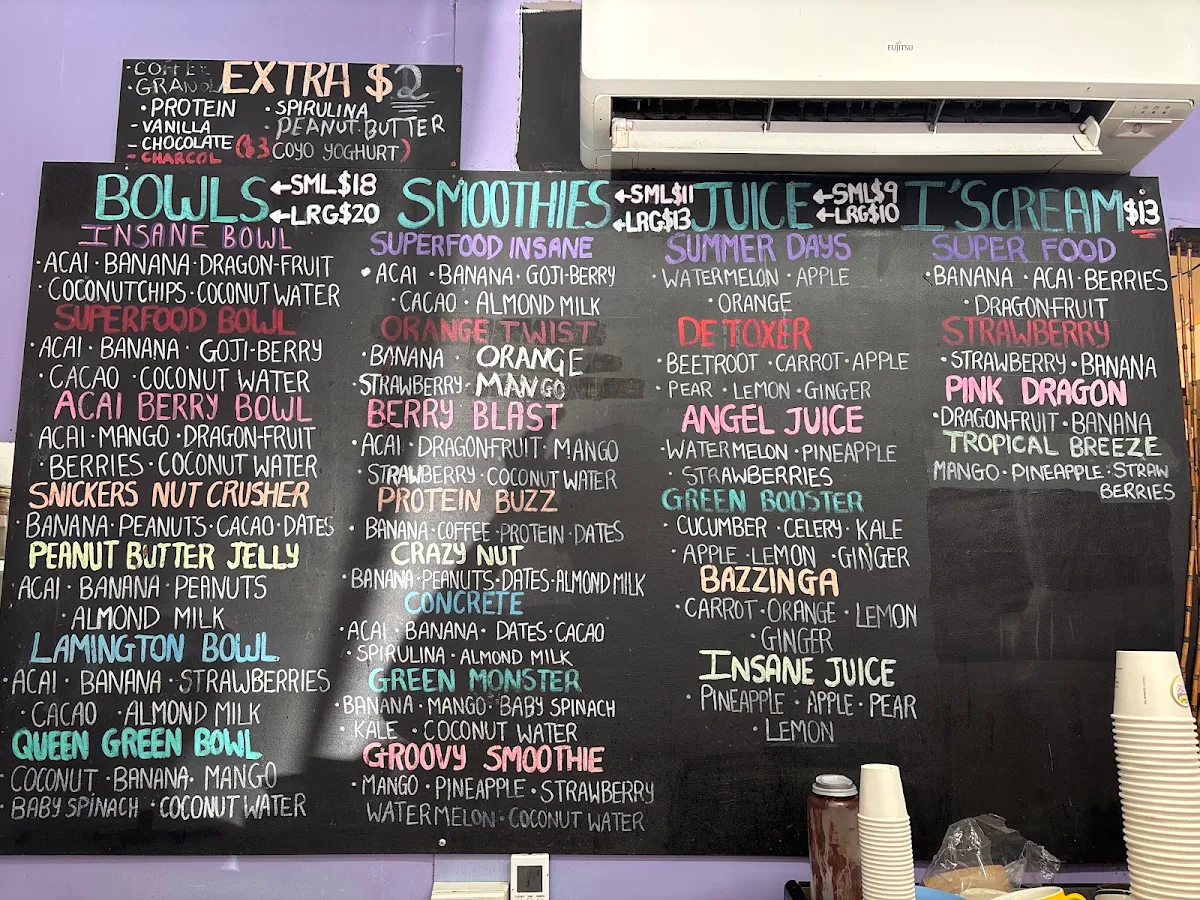 FUJITSU
EXTRA $2
· COFFEE
· GRANOLA
· PROTEIN
- VANILLA
- CHOCOLATE
- CHARCOL
· SPIRULINA
· PEANUT BUTTER
($3 COYO YOGHURT)
BOWLS ←SML$18
←LRG$20
INSANE BOWL
· ACAI · BANANA · DRAGON-FRUIT
· COCONUTCHIPS · COCONUT WATER
SUPERFOOD BOWL
· ACAI · BANANA · GOJI-BERRY
· CACAO · COCONUT WATER
ACAI BERRY BOWL
ACAI · MANGO · DRAGON-FRUIT
· BERRIES · COCONUT WATER
SNICKERS NUT CRUSHER
· BANANA · PEANUTS · CACAO · DATES
PEANUT BUTTER JELLY
ACAI · BANANA · PEANUTS
· ALMOND MILK
LAMINGTON BOWL
· ACAI · BANANA · STRAWBERRIES
· CACAO · ALMOND MILK
QUEEN GREEN BOWL
· COCONUT · BANANA · MANGO
· BABY SPINACH · COCONUT WATER
SMOOTHIES ←SML$11
←LRG$13
SUPERFOOD INSANE
· ACAI · BANANA · GOJI-BERRY
· CACAO · ALMOND MILK
ORANGE TWIST
· BANANA · ORANGE
· STRAWBERRY · MANGO
BERRY BLAST
· ACAI · DRAGONFRUIT · MANGO
· STRAWBERRY · COCONUT WATER
PROTEIN BUZZ
· BANANA · COFFEE · PROTEIN · DATES
CRAZY NUT
· BANANA · PEANUTS · DATES · ALMOND MILK
CONCRETE
· ACAI · BANANA · DATES · CACAO
· SPIRULINA · ALMOND MILK
GREEN MONSTER
· BANANA · MANGO · BABY SPINACH
· KALE · COCONUT WATER
GROOVY SMOOTHIE
· MANGO · PINEAPPLE · STRAWBERRY
WATERMELON · COCONUT WATER
JUICE ←SML$9
←LRG$10
SUMMER DAYS
· WATERMELON · APPLE
· ORANGE
DETOXER
· BEETROOT · CARROT · APPLE
· PEAR · LEMON · GINGER
ANGEL JUICE
· WATERMELON · PINEAPPLE
· STRAWBERRIES
GREEN BOOSTER
· CUCUMBER · CELERY · KALE
· APPLE · LEMON · GINGER
BAZZINGA
· CARROT · ORANGE · LEMON
· GINGER
INSANE JUICE
· PINEAPPLE · APPLE · PEAR
· LEMON
I'SCREAM $13
SUPER FOOD
· BANANA · ACAI · BERRIES
· DRAGONFRUIT
STRAWBERRY
· STRAWBERRY · BANANA
PINK DRAGON
· DRAGONFRUIT · BANANA
TROPICAL BREEZE
MANGO · PINEAPPLE · STRAW
BERRIES